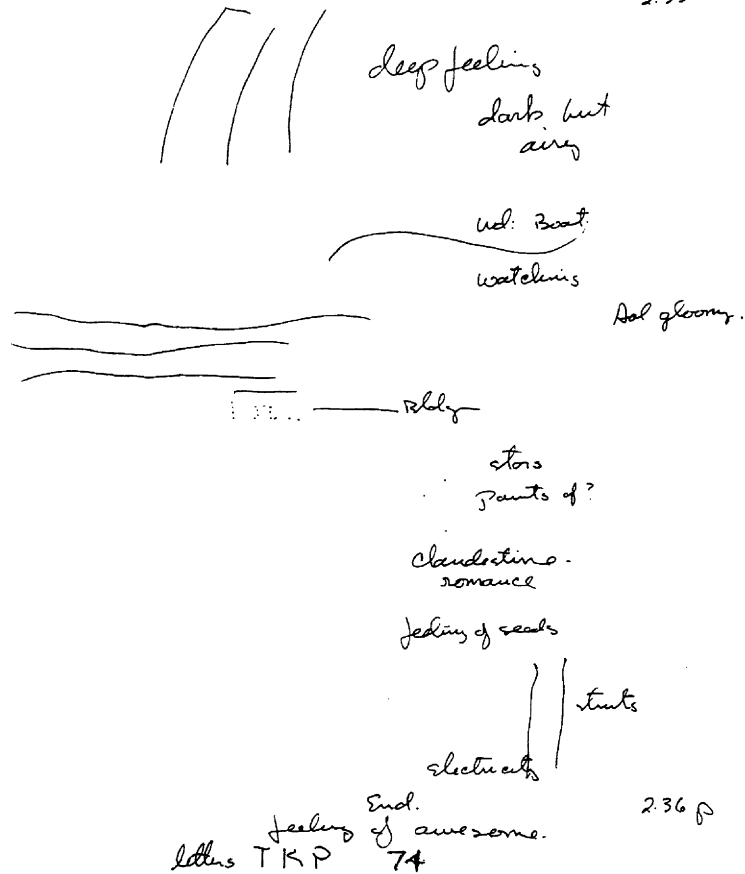 deep feeling
dark but
airy
Ud: Boat.
watching
AoL gloomy.
Bldg
stars
Points of?
Clandestine.
romance
feeling of seeds
struts
electricity
End.
2.36 p
feeling of awesome.
letters TKP 74